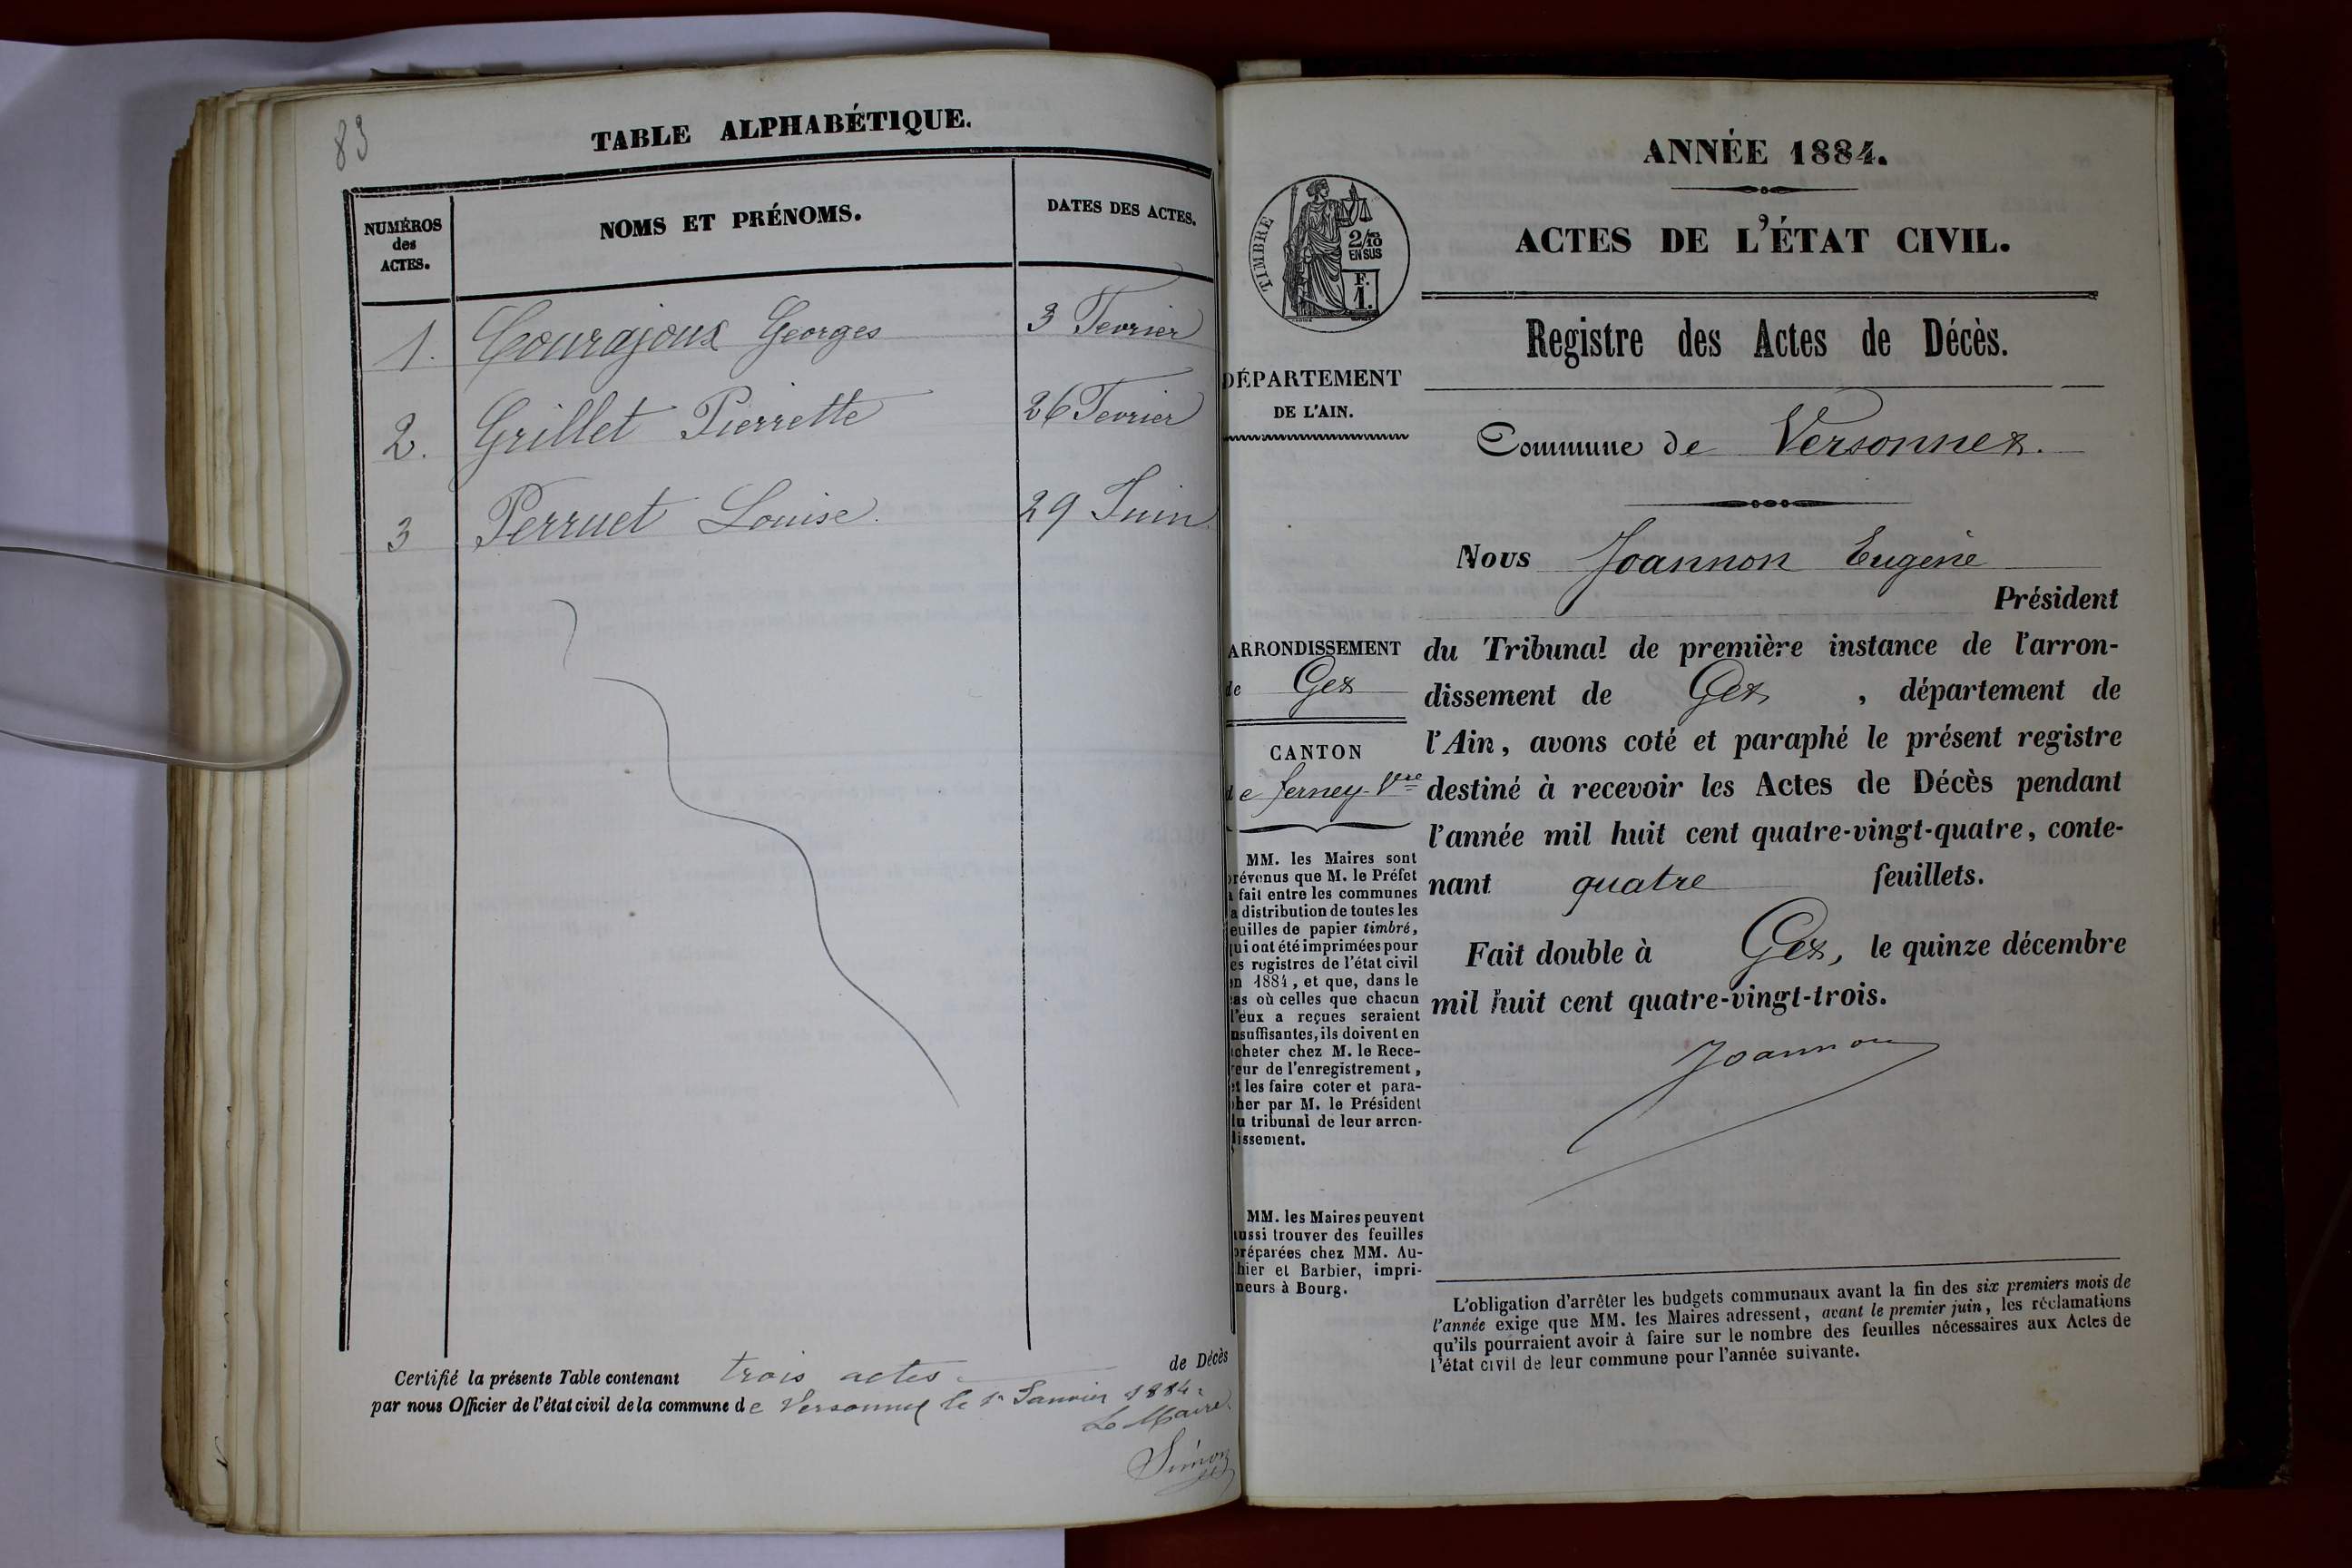 83
TABLE ALPHABÉTIQUE.
NUMÉROS
des
ACTES.
NOMS ET PRÉNOMS.
DATES DES ACTES.
1. Courajoux Georges 3 Fevrier
2. Grillet Pierrette 26 Fevrier
3 Perruet Louise. 29 Juin
Certifié la présente Table contenant trois actes de Décès
par nous Officier de l'état civil de la commune de Versonnex le 1er Janvier 1884.
Le Maire
ANNÉE 1884.
ACTES DE L'ÉTAT CIVIL.
TIMBRE
2/10
EN SUS
F.
1.
Registre des Actes de Décès.
DÉPARTEMENT
DE L'AIN.
Commune de Versonnex.
Nous Joannon Eugène
Président
ARRONDISSEMENT
de Gex
CANTON
de Ferney-Vre
du Tribunal de première instance de l'arron-
dissement de Gex, département de
l'Ain, avons coté et paraphé le présent registre
destiné à recevoir les Actes de Décès pendant
l'année mil huit cent quatre-vingt-quatre, conte-
nant quatre feuillets.
Fait double à Gex, le quinze décembre
mil huit cent quatre-vingt-trois.
Joannon
MM. les Maires sont
prévenus que M. le Préfet
a fait entre les communes
la distribution de toutes les
feuilles de papier timbré,
qui ont été imprimées pour
les registres de l'état civil
en 1884, et que, dans le
cas où celles que chacun
d'eux a reçues seraient
insuffisantes, ils doivent en
acheter chez M. le Rece-
veur de l'enregistrement,
et les faire coter et para-
pher par M. le Président
du tribunal de leur arron-
dissement.
MM. les Maires peuvent
aussi trouver des feuilles
préparées chez MM. Au-
thier et Barbier, impri-
meurs à Bourg.
L'obligation d'arrêter les budgets communaux avant la fin des six premiers mois de
l'année exige que MM. les Maires adressent, avant le premier juin, les réclamations
qu'ils pourraient avoir à faire sur le nombre des feuilles nécessaires aux Actes de
l'état civil de leur commune pour l'année suivante.